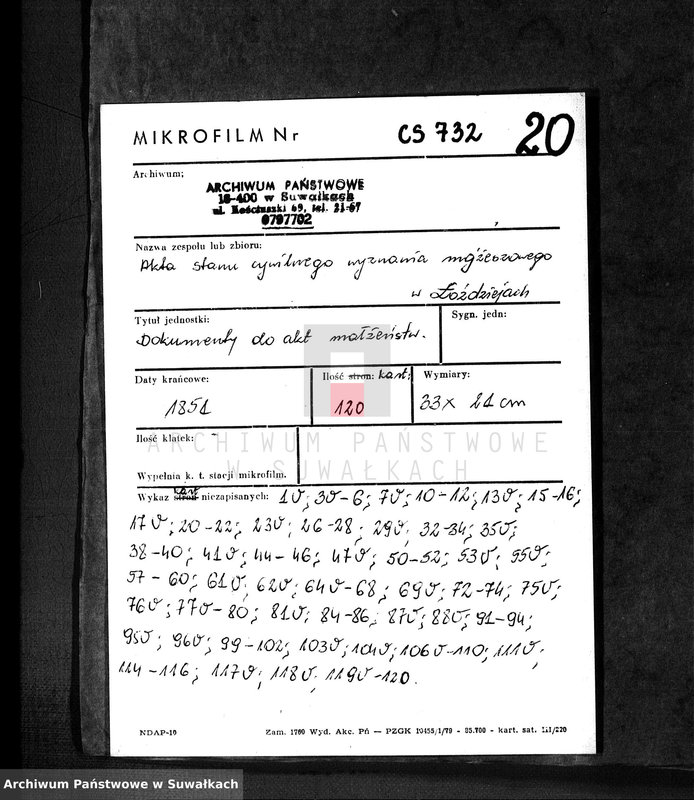 MIKROFILM Nr CS 732 20
Archiwum:
ARCHIWUM PAŃSTWOWE
16-400 w Suwałkach
ul. Kościuszki 69, tel. 21-67
0797702
Nazwa zespołu lub zbioru:
Akta stanu cywilnego wyznania mojżeszowego
w Łoździejach
Tytuł jednostki: Sygn. jedn:
Dokumenty do akt małżeństw.
Daty krańcowe: Ilość stron: kart: Wymiary:
1851 120 33 x 21 cm
Ilość klatek:
ARCHIWUM PAŃSTWOWE
W SUWAŁKACH
Wypełnia k. t. stacji mikrofilm.
Wykaz stron kart niezapisanych: 1v; 3v-6; 7v; 10-12; 13v; 15-16;
17v; 20-22; 23v; 26-28; 29v; 32-34; 35v;
38-40; 41v; 44-46; 47v; 50-52; 53v; 55v;
57-60; 61v; 62v; 64v-68; 69v; 72-74; 75v;
76v; 77v-80; 81v; 84-86; 87v; 88v; 91-94;
95v; 96v; 99-102; 103v; 104v; 106v-110; 111v;
114-116; 117v; 118v; 119v-120.
NDAP-10 Zam. 1760 Wyd. Akc. Pń — PZGK 10455/1/79 - 85.700 - kart. sat. III/220
Archiwum Państwowe w Suwałkach